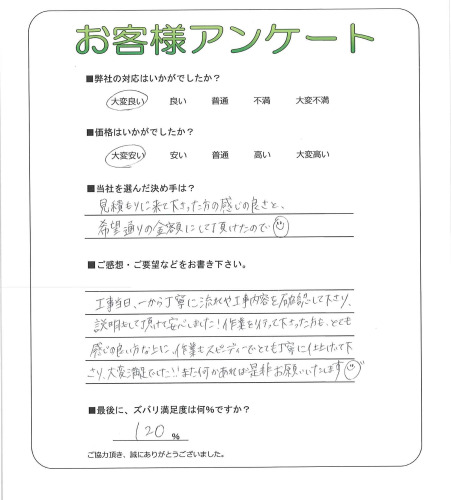 お客様アンケート
■弊社の対応はいかがでしたか？
大変良い 良い 普通 不満 大変不満
■価格はいかがでしたか？
大変安い 安い 普通 高い 大変高い
■当社を選んだ決め手は？
見積もりに来て下さった方の感じの良さと、
希望通りの金額にして頂けたので
■ご感想・ご要望などをお書き下さい。
工事当日、一から丁寧に流れや工事内容を確認して下さり、
説明して頂けて安心しました！作業を行って下さった方も、とても
感じの良い方な上に、作業もスピーディーでとても丁寧に仕上げて下
さり、大変満足でした!!また何かあれば是非お願いいたします
■最後に、ズバリ満足度は何％ですか？
120 %
ご協力頂き、誠にありがとうございました。